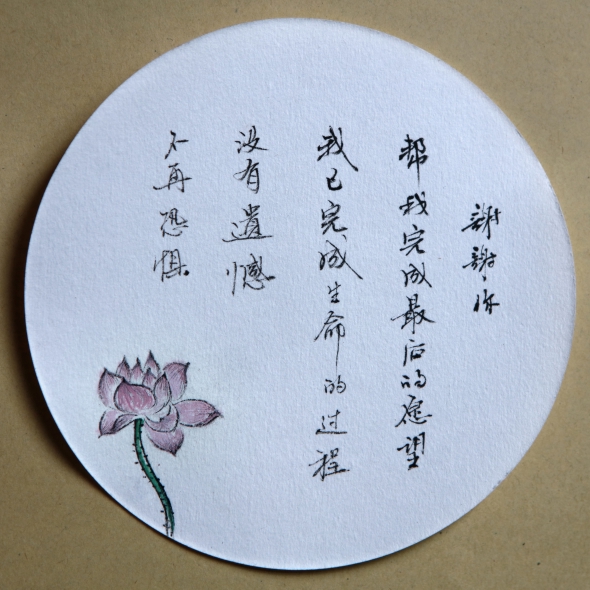 謝謝你
帮我完成最后的愿望
我已完成生命的过程
没有遺憾
不再恐惧